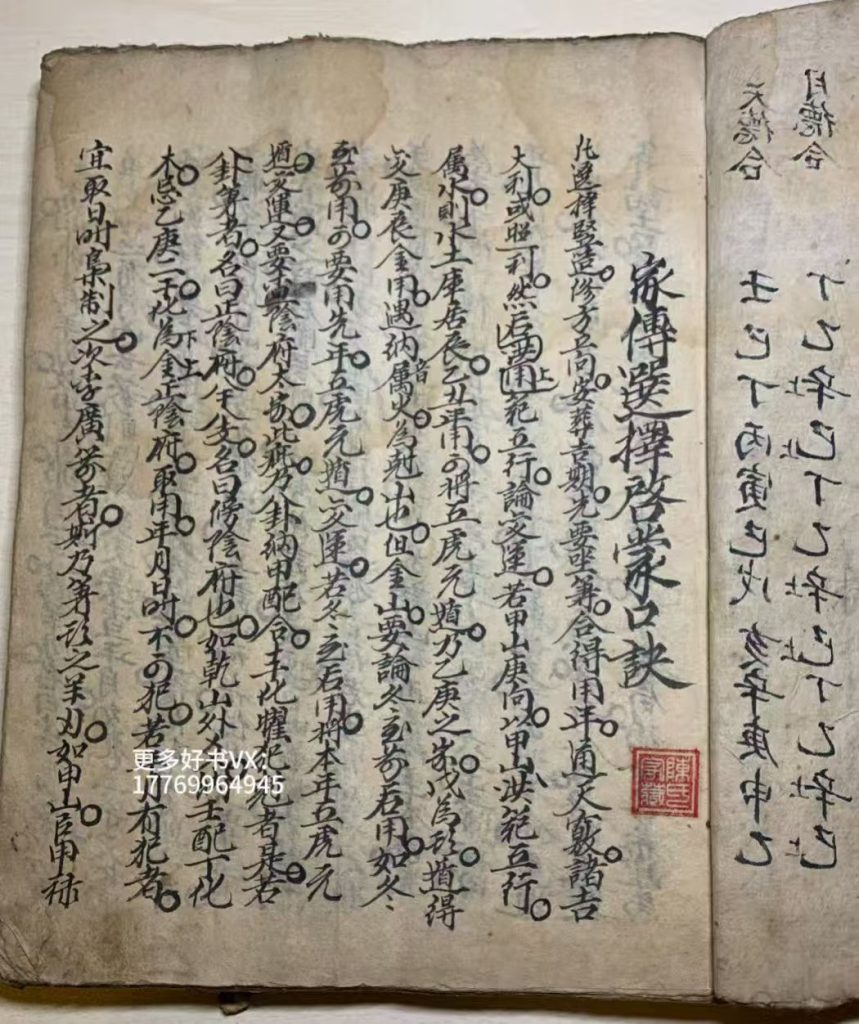 家傳選擇啓蒙口訣
凡選擇竪造修方立向安葬吉期先要坐算合得用年通天竅諸吉
大利或照利然后要用洪範五行論变運若甲山庚向以甲山洪範五行
属水則水土庫居辰乙丑年用可將五虎元遁乃乙庚之歲戊為頭遁得
变庚辰金用遇納音属火為尅山也但金山要論冬至前后用如冬
至前用可要用先年五虎元遁变運若冬至后用將本年五虎元
遁变運又要陰府太歲此乃卦納甲配合干化犯者是若
卦算者名曰正陰府从支名曰傍陰府也如乾山壬配丁化
木忌乙庚二干化為金正陰府取用年月日时不可犯若有犯者
宜取日时梟制之次李廣箭者斯乃算頭之羊刃如甲山官甲祿
陳氏家藏
月德合
天德合
丁乙辛己丁乙辛己丁乙辛己
壬巳丁丙寅己戊亥辛庚申乙
更多好书VX:
17769964945